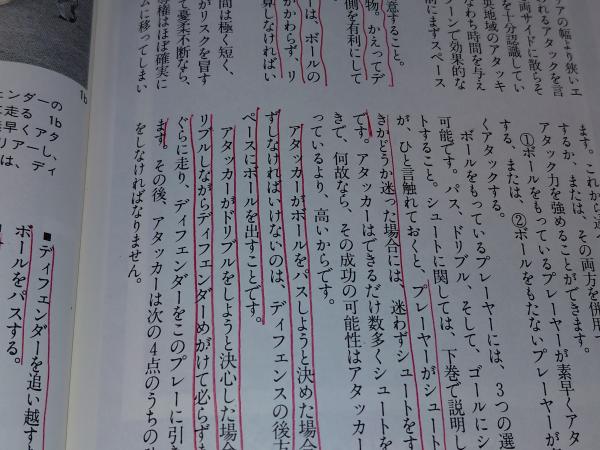 アの幅より狭いエ
れるアタックを言
両サイドに散らそ
を十分認識してい
央地域のアタッキ
なわち時間を与え
ーンで効果的な
前にまずスペース
意すること。
物。かえってデ
側を有利にして
ーは、ボールの
かかわらず、リ
算しなければい
間は極く短く、
がリスクを冒す
て憂柔不断なら、
導権はほぼ確実に
ムに移ってしまい
ます。これから述
するか、または、その両方を併用
アタック力を強めることができます。
①ボールをもっているプレーヤーが素早くアタ
する、または、②ボールをもたないプレーヤーが
くアタックする。
ボールをもっているプレーヤーには、3つの選
可能です。パス、ドリブル、そして、ゴールにシ
トすること。シュートに関しては、下巻で説明し
が、ひと言触れておくと、プレーヤーがシュート
きかどうか迷った場合には、迷わずシュートをす
です。アタッカーはできるだけ数多くシュートを
きで、何故なら、その成功の可能性はアタッカー
っているより、高いからです。
アタッカーがボールをパスしようと決めた場合
ずしなければいけないのは、ディフェンスの後方
ペースにボールを出すことです。
アタッカーがドリブルをしようと決心した場合
リブルしながらディフェンダーめがけて必らずま
ぐらに走り、ディフェンダーをこのプレーに引き
ます。その後、アタッカーは次の4点のうちの
をしなければなりません。
■ディフェンダーを追い越す
ボールをパスする。
1b
ンダーの
に走る 1b
早くアタ
リアーし、
は、ディ